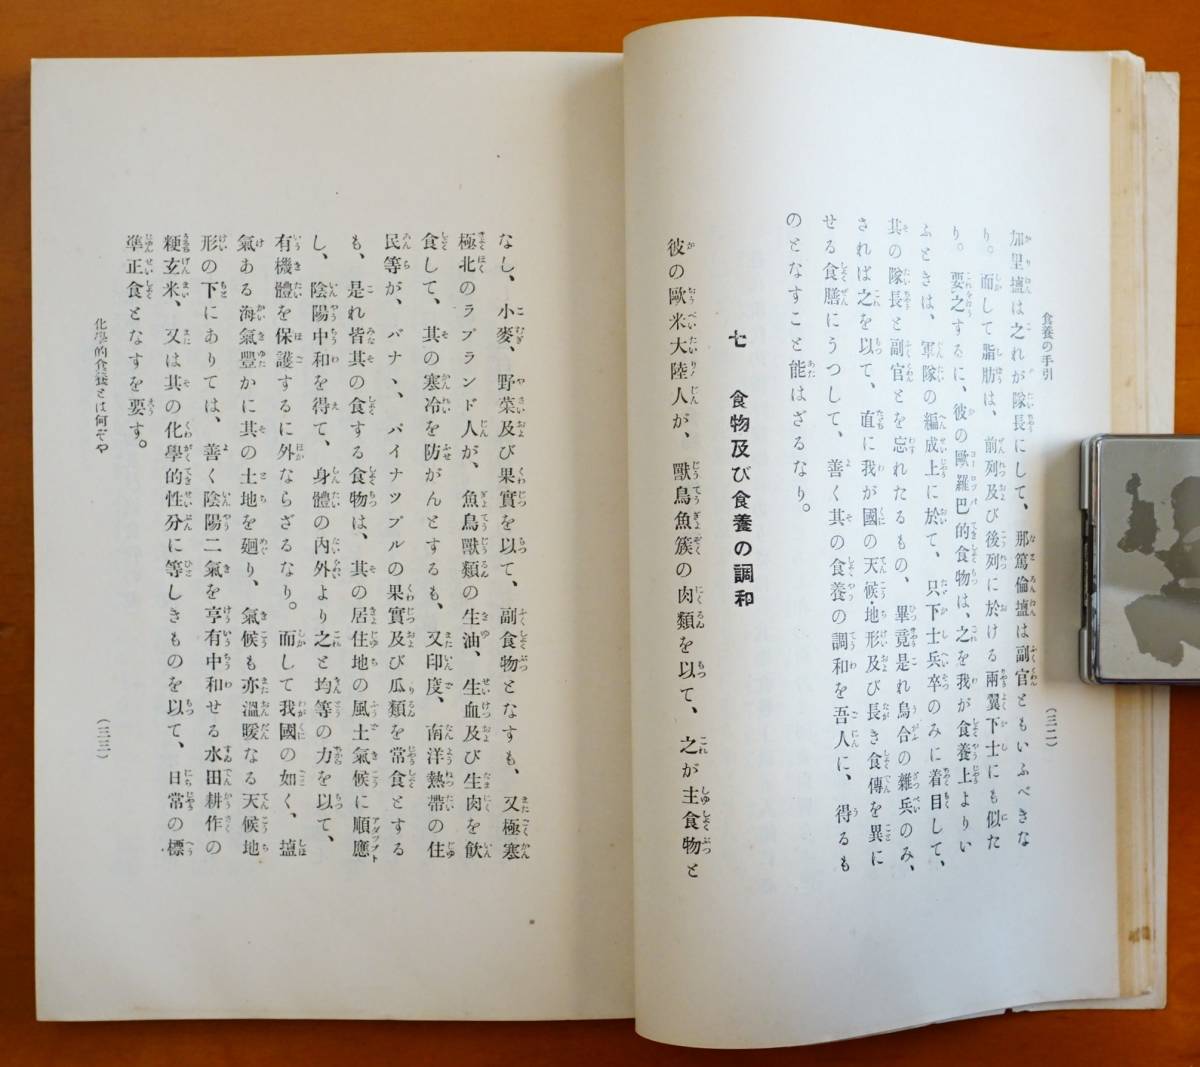 食養の手引
(三二)
加里塩は之れが隊長にして、那篤倫塩は副官ともいふべきな
り。而して脂肪は、前列及び後列に於ける兩翼下士にも似た
り。要之するに、彼の歐羅巴的食物は、之を我が食養上よりい
ふときは、軍隊の編成上に於て、只下士兵卒のみに着目して、
其の隊長と副官とを忘れたるもの、畢竟是れ烏合の雜兵のみ、
されば之を以て、直に我が國の天候・地形及び長き食傳を異に
せる食膳にうつして、善く其の食養の調和を吾人に、得るも
のとなすこと能はざるなり。
七 食物及び食養の調和
彼の歐米大陸人が、獸鳥魚簇の肉類を以て、之が主食物と
なし、小麥、野菜及び果實を以て、副食物となすも、又極寒
極北のラプランド人が、魚鳥獸類の生油、生血及び生肉を飮
食して、其の寒冷を防がんとするも、又印度、南洋熱帶の住
民等が、バナヽ、パイナツプルの果實及び瓜類を常食とする
も、是れ皆其の食する食物は、其の居住地の風土氣候に順應
し、陰陽中和を得て、身體の內外より之と均等の力を以て、
有機體を保護するに外ならざるなり。而して我國の如く、塩
氣ある海氣豐かに其の土地を廻り、氣候も亦溫暖なる天候地
形の下にありては、善く陰陽二氣を享有中和せる水田耕作の
粳玄米、又は其の化學的性分に等しきものを以て、日常の標
準正食となすを要す。
化學的食養とは何ぞや
(三三)